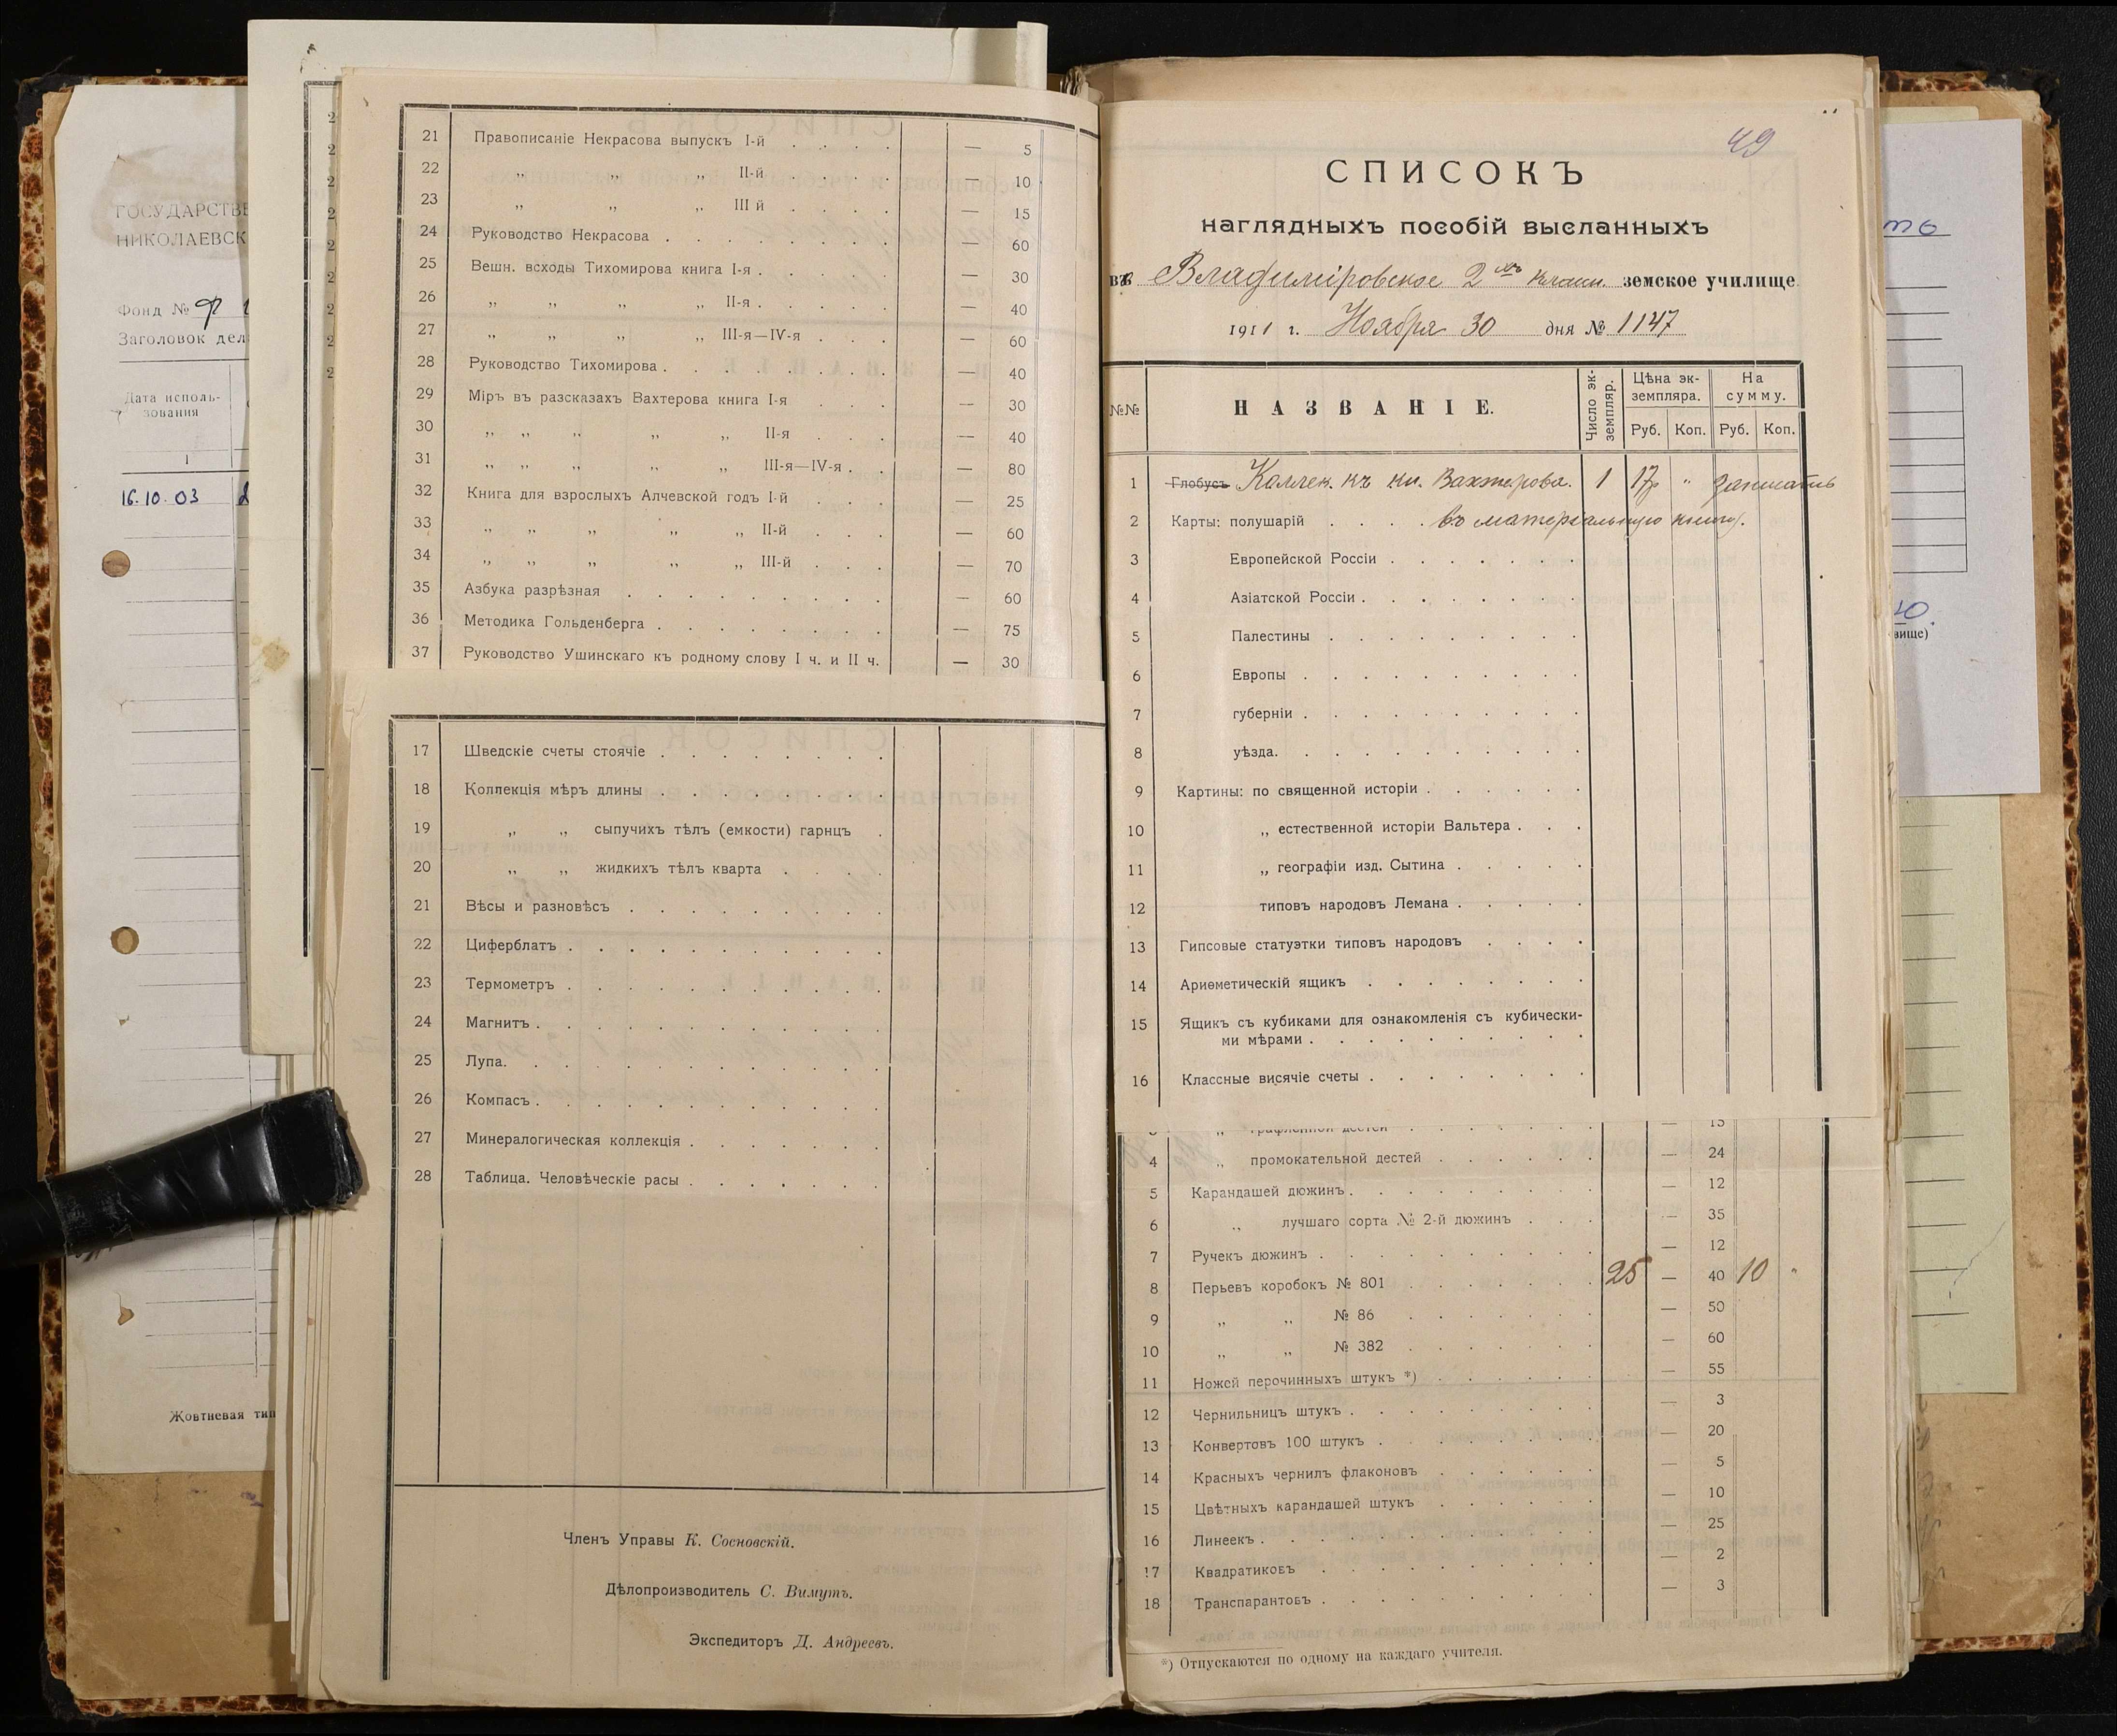 ГОСУДАРСТВЕ
НИКОЛАЕВСК
Фонд № Ф
Заголовок дел
Дата исполь-
зования
1
16.10.03
Жовтневая тип
21 Правописаніе Некрасова выпускъ I-й . . . . — 5
22 „ „ „ II-й . . . . — 10
23 „ „ „ III й . . . . — 15
24 Руководство Некрасова . . . . . . . . — 60
25 Вешн. всходы Тихомирова книга I-я . . . . . — 30
26 „ „ „ „ II-я . . . . . — 40
27 „ „ „ „ III-я—IV-я . . . — 60
28 Руководство Тихомирова . . . . . . . . — 40
29 Міръ въ разсказахъ Вахтерова книга I-я . . . — 30
30 „ „ „ „ „ II-я . . . — 40
31 „ „ „ „ „ III-я—IV-я . . — 80
32 Книга для взрослыхъ Алчевской годъ I-й . . . — 25
33 „ „ „ „ „ II-й . . . — 60
34 „ „ „ „ „ III-й . . . — 70
35 Азбука разрѣзная . . . . . . . . . — 60
36 Методика Гольденберга . . . . . . . . — 75
37 Руководство Ушинскаго къ родному слову I ч. и II ч. — 30
17 Шведскіе счеты стоячіе . . . . . . . .
18 Коллекція мѣръ длины . . . . . . . .
19 „ „ сыпучихъ тѣлъ (емкости) гарнцъ .
20 „ „ жидкихъ тѣлъ кварта . . . .
21 Вѣсы и разновѣсъ . . . . . . . . .
22 Циферблатъ . . . . . . . . . . .
23 Термометръ . . . . . . . . . . .
24 Магнитъ . . . . . . . . . . . .
25 Лупа. . . . . . . . . . . . .
26 Компасъ . . . . . . . . . . . .
27 Минералогическая коллекція . . . . . . .
28 Таблица. Человѣческіе расы . . . . . . .
Членъ Управы К. Сосновскій.
Дѣлопроизводитель С. Вимутъ.
Экспедиторъ Д. Андреевъ.
49
СПИСОКЪ
наглядныхъ пособій высланныхъ
въ Владиміровское 2 хъ класн. земское училище
1911 г. Ноября 30 дня № 1147
№№ НАЗВАНІЕ. Число эк-земпляр. Цѣна эк-земпляра. На сумму.
Руб. Коп. Руб. Коп.
1 Глобусъ Коллек. къ кн. Вахтерова. 1 17р „ записать
2 Карты: полушарій . . . . въ матеріальную книгу.
3 Европейской Россіи . . . . . .
4 Азіатской Россіи . . . . . .
5 Палестины . . . . . . . . .
6 Европы . . . . . . . . . .
7 губерніи . . . . . . . . . .
8 уѣзда. . . . . . . . . . .
9 Картины: по священной исторіи . . . . . .
10 „ естественной исторіи Вальтера . . .
11 „ географіи изд. Сытина . . . . .
12 типовъ народовъ Лемана . . . . .
13 Гипсовые статуэтки типовъ народовъ . . . .
14 Ариѳметическій ящикъ . . . . . . . .
15 Ящикъ съ кубиками для ознакомленія съ кубически-
ми мѣрами . . . . . . . . . .
16 Классные висячіе счеты . . . . . . . .
„ графленной дестей . . . . . . — 15
4 „ промокательной дестей . . . . . . — 24
5 Карандашей дюжинъ . . . . . . . . . — 12
6 „ лучшаго сорта № 2-й дюжинъ . . . — 35
7 Ручекъ дюжинъ . . . . . . . . . . — 12
8 Перьевъ коробокъ № 801 . . . . . . . 25 — 40 10 „
9 „ „ № 86 . . . . . . . — 50
10 „ „ № 382 . . . . . . . — 60
11 Ножей перочинныхъ штукъ *) . . . . . . — 55
12 Чернильницъ штукъ . . . . . . . . . — 3
13 Конвертовъ 100 штукъ . . . . . . . . — 20
14 Красныхъ чернилъ флаконовъ . . . . . . — 5
15 Цвѣтныхъ карандашей штукъ . . . . . . — 10
16 Линеекъ . . . . . . . . . . . . — 25
17 Квадратиковъ . . . . . . . . . . — 2
18 Транспарантовъ . . . . . . . . . . — 3
*) Отпускаются по одному на каждаго учителя.
вище)